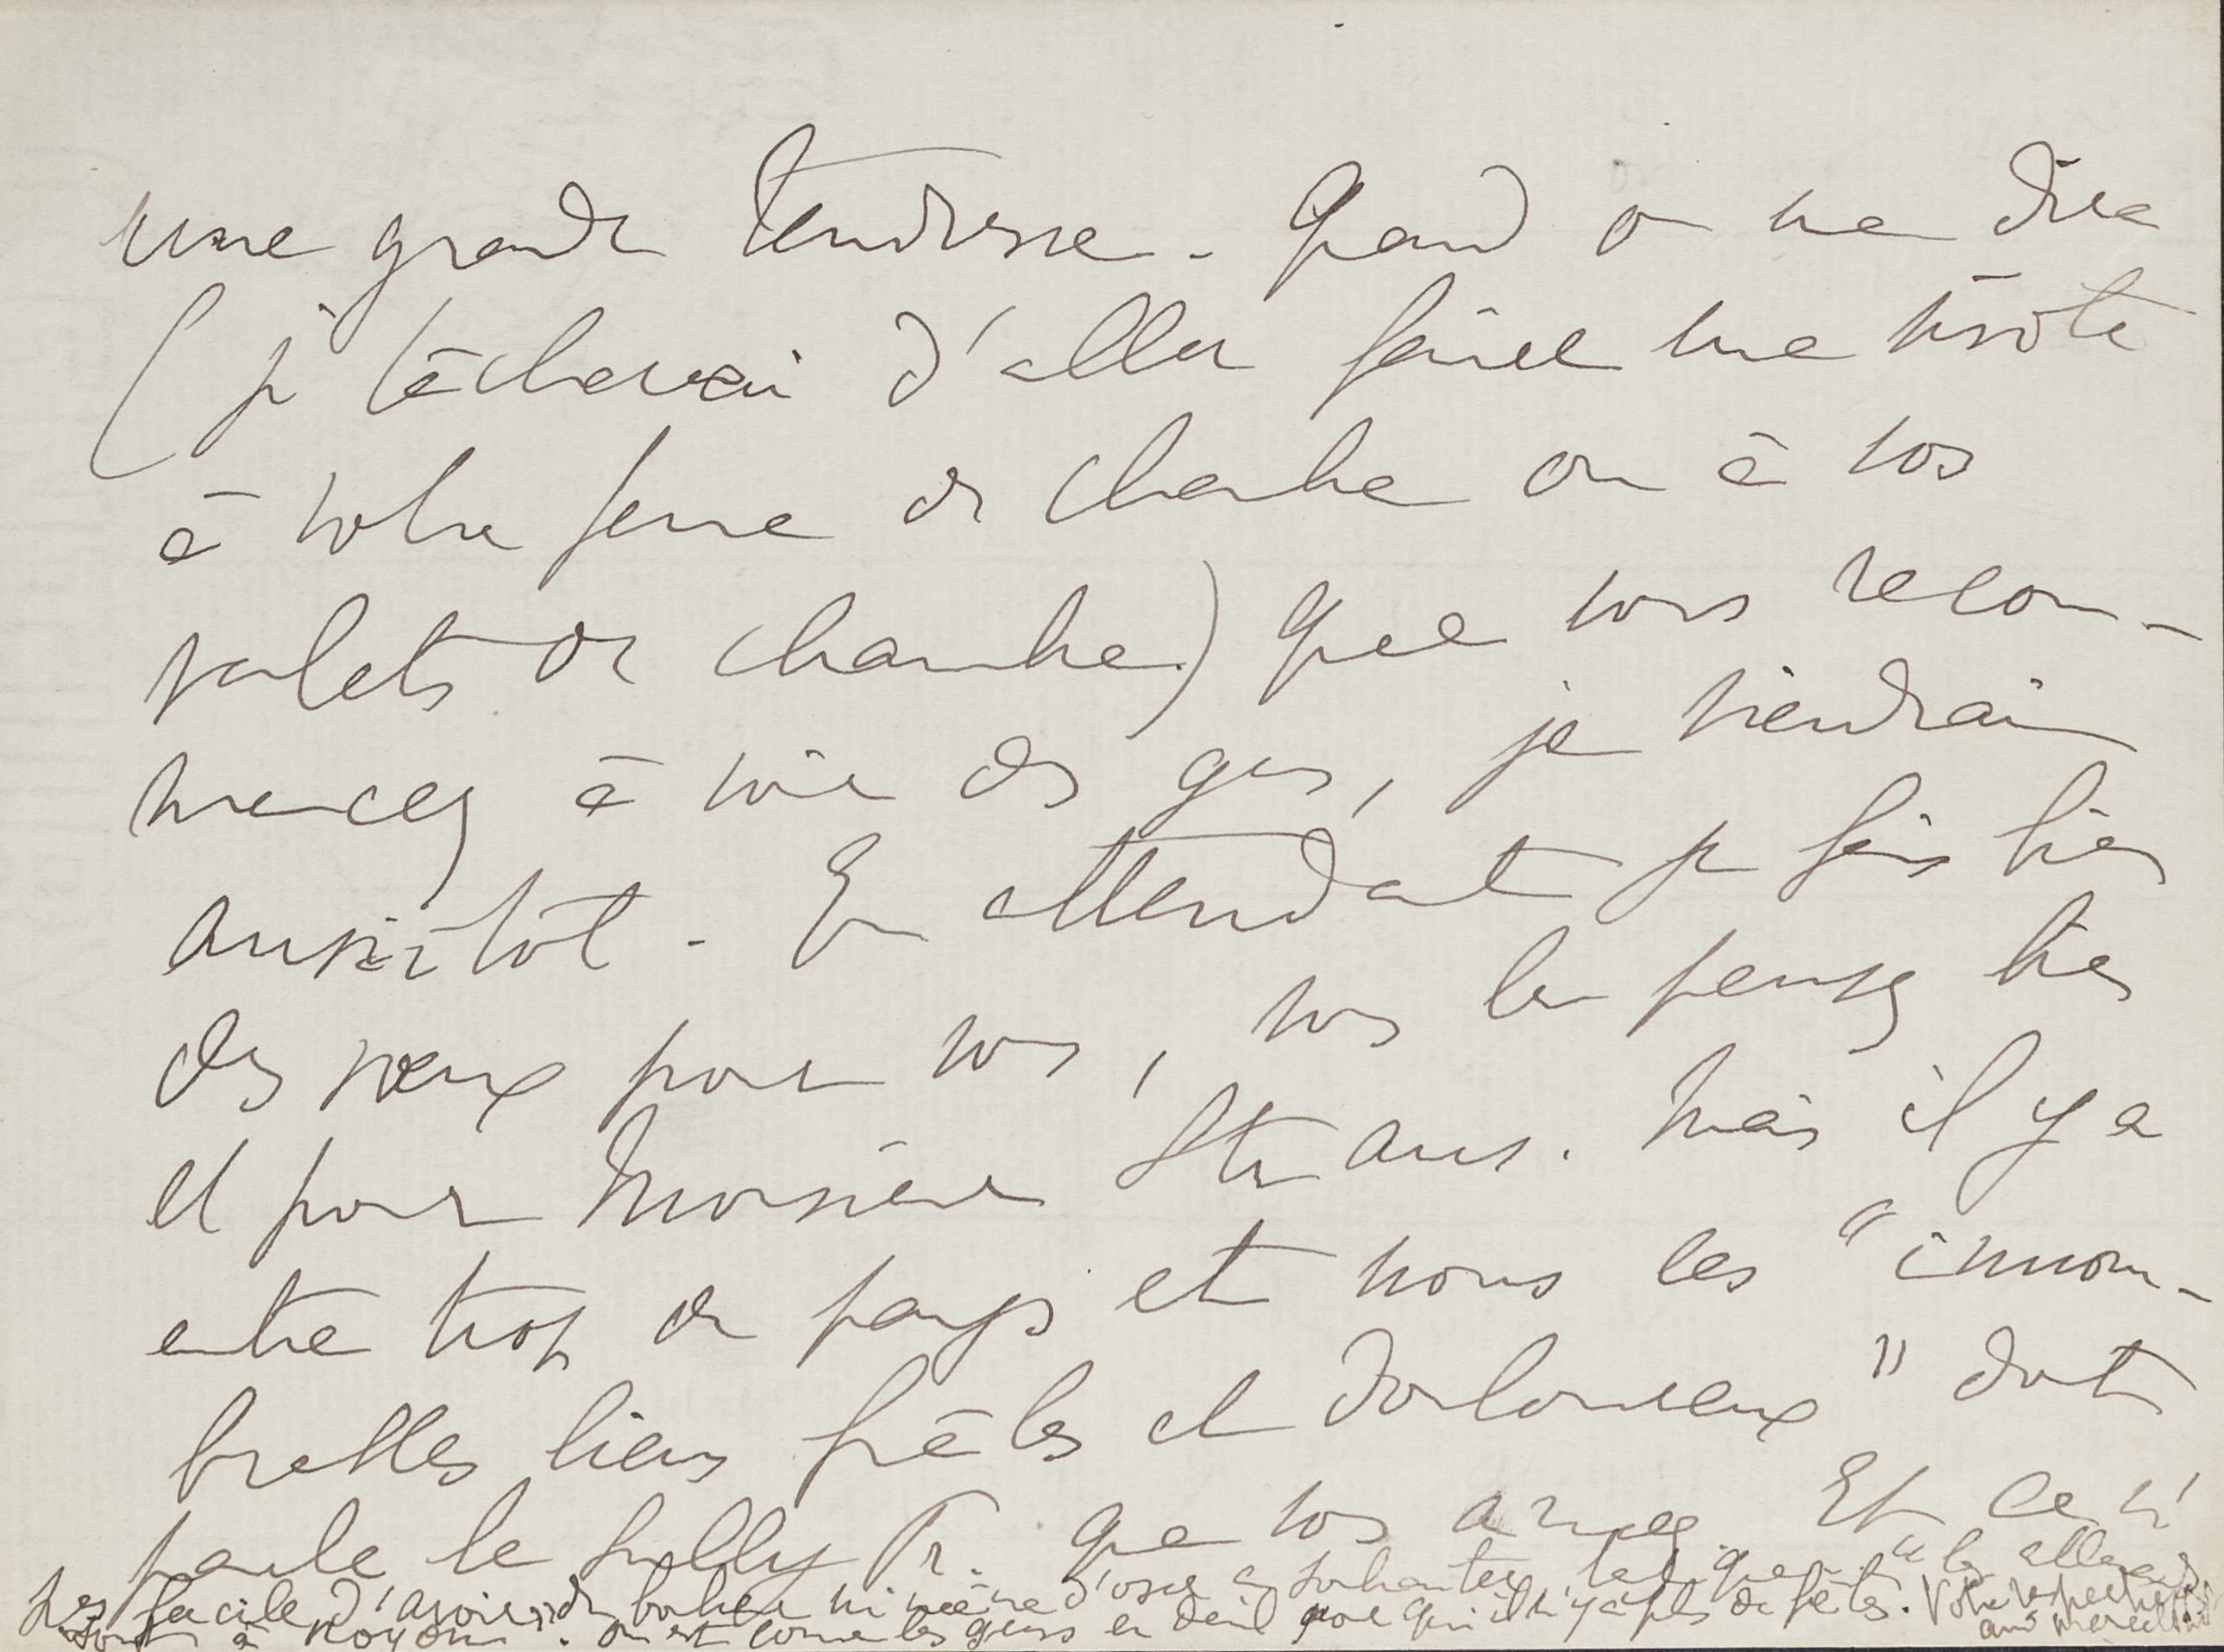 une grande tendresse. Quand on me dira
(je tâcherai d'aller faire une visite
à votre femme de chambre ou à vos
valets de chambre) que vous recom-
mencez à voir des gens, je viendrai
aussitôt. En attendant je fais bien
des vœux pour vous, vous le pensez bien
et pour Monsieur Straus. Mais il y a
entre trop de pays et nous les "innom-
brables liens frêles et douloureux" dont
parle le Sully Pr. que vous aimez. Et ce n'
est pas facile d'avoir du bonheur ni même d'oser en souhaiter tant que "les allemands
sont à Noyon". On est comme les gens en deuil pour qui il n'y a plus de fêtes. Votre respectueux
ami Marcel Proust